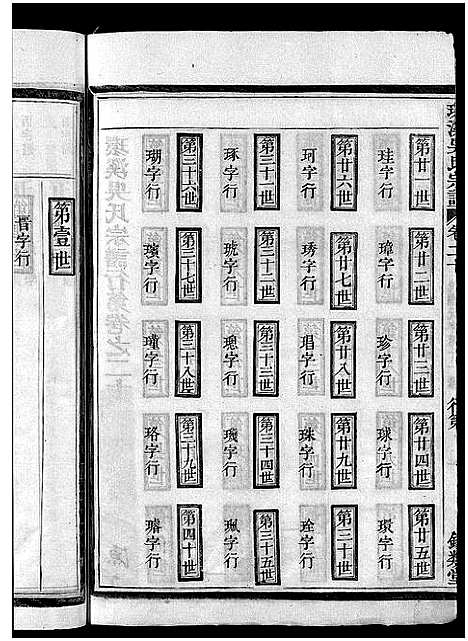 第廿一世
珪字行
第廿二世
璋字行
第廿三世
珍字行
第廿四世
球字行
第廿五世
環字行
第廿六世
珂字行
第廿七世
琇字行
第廿八世
琩字行
第廿九世
珠字行
第三十世
珄字行
第三十一世
琢字行
第三十二世
琥字行
第三十三世
璁字行
第三十四世
第三十五世
珮字行
第三十六世
瑚字行
第三十七世
璸字行
第三十八世
瓊字行
第三十九世
珞字行
第四十世
璿字行
第壹世
晋字行